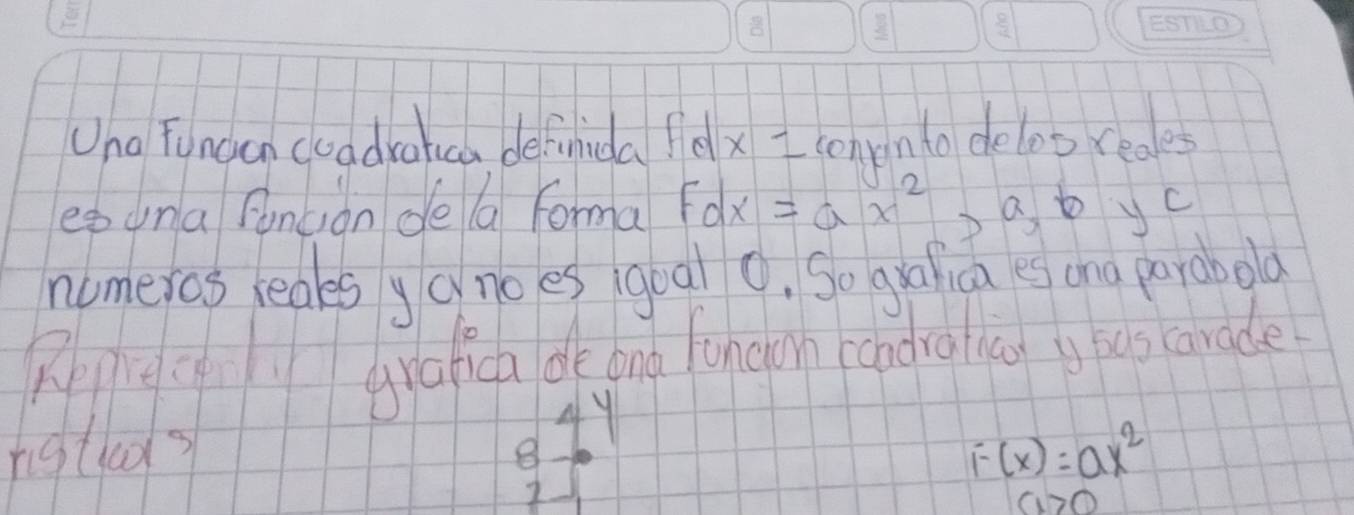 Tem Dia Mes Año ESTILO
Una Función cuadratica definida Fdx = conjunto delos reales
es una función de la forma Fdx = ax², a, b y c
números reales y a no es igual 0. So grafica es una parabola
grafica de una función cuadratica y sus caracte-
risticas
y
8
7
F(x) = ax²
a>0